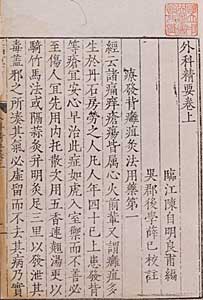 外科精要卷上
臨江陳自明良甫編
吳郡後學薛己校註
療發背癰疽灸法用藥第一
經云諸痛痒瘡瘍皆屬心火前輩又謂癰疽多
生於丹石房勞之人凡人年四十已上患發背
等瘡宜安心早治此症如虎入室禦而不善必
至傷人宜先用内托散次用五香連翹湯更以
騎竹馬法或隔蒜灸并明灸足三里以發泄其
毒蓋邪之所湊其氣必虛留而不去其病乃實